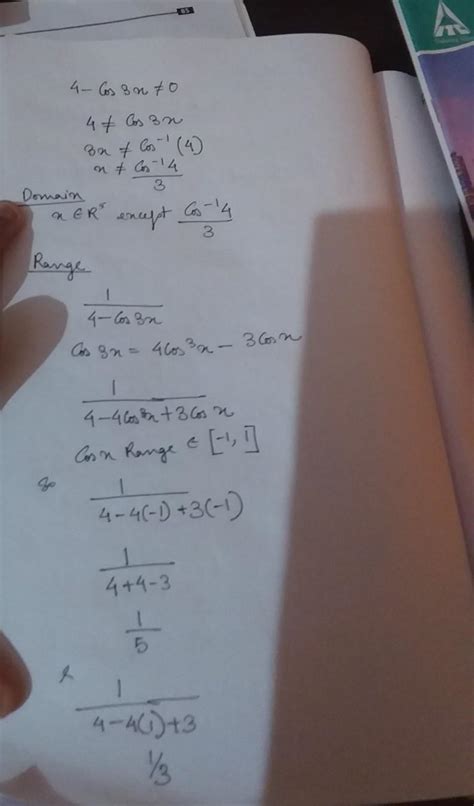 4 - Cos 3x ≠ 0
4 ≠ Cos 3x
3x ≠ Cos⁻¹ (4)
x ≠ Cos⁻¹4 / 3
Domain
x ∈ R except Cos⁻¹4 / 3
Range
1 / 4 - Cos 3x
Cos 3x = 4Cos³x - 3Cosx
1 / 4 - 4Cos³x + 3Cosx
Cosx Range ∈ [-1, 1]
So 1 / 4 - 4(-1) + 3(-1)
1 / 4 + 4 - 3
1 / 5
& 1 / 4 - 4(1) + 3
1/3
ITC